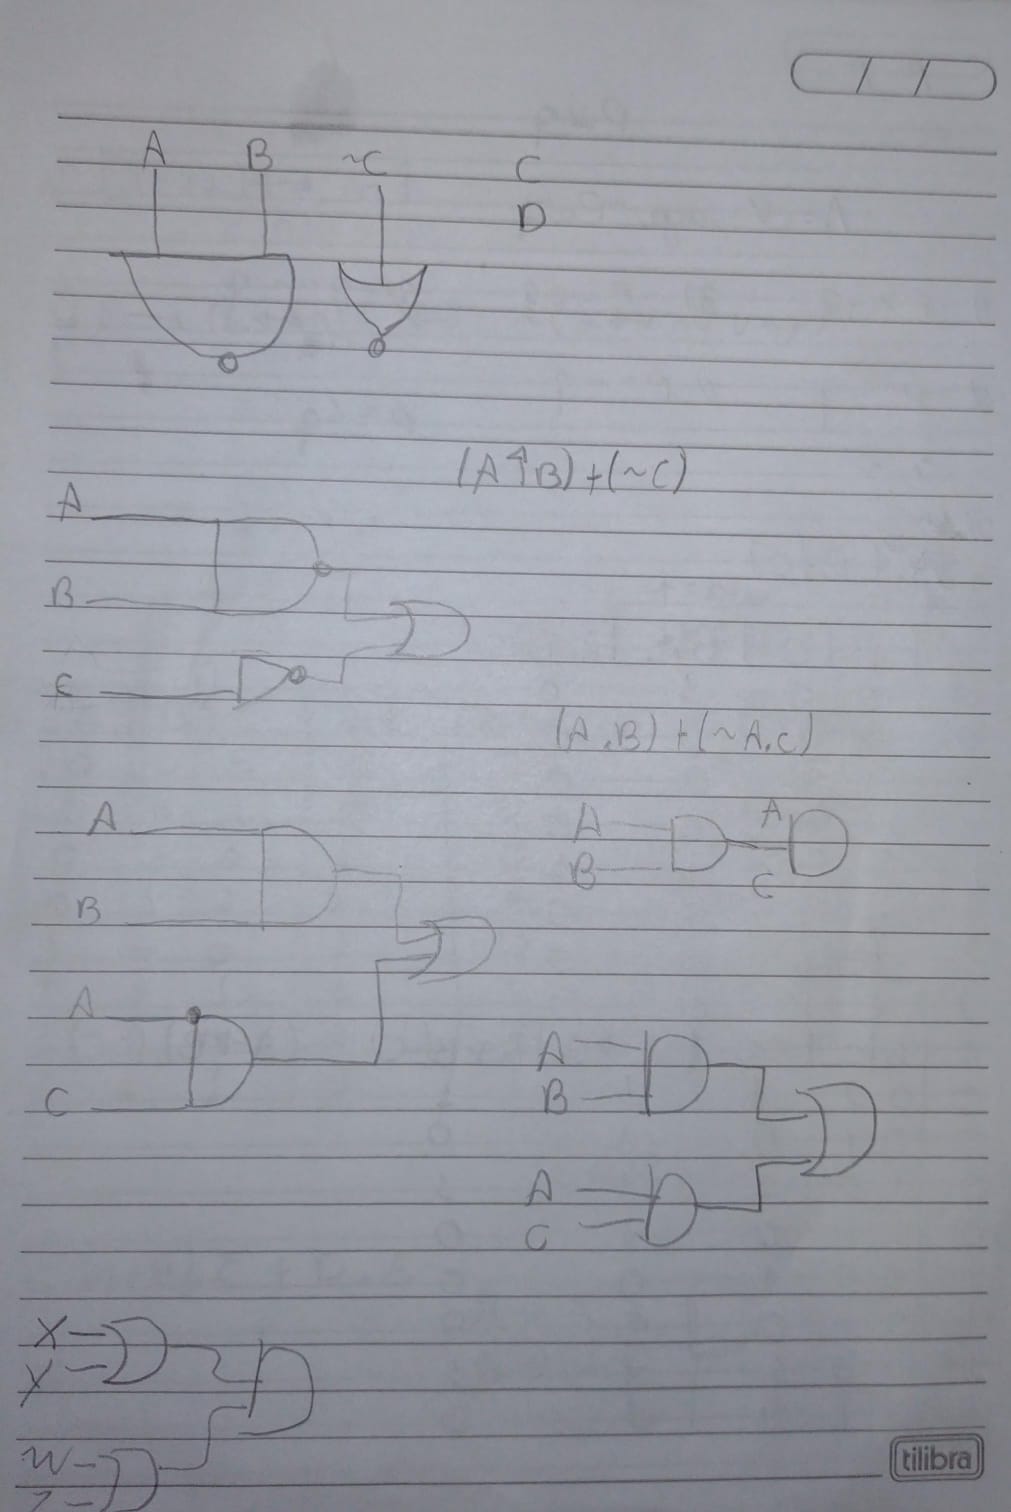 A B ~C C
D
(A↑B)+(~C)
A
B
C
(A.B)+(~A.C)
A
B
A
B
A
C
A
C
A
B
A
C
X
Y
W
Z
tilibra